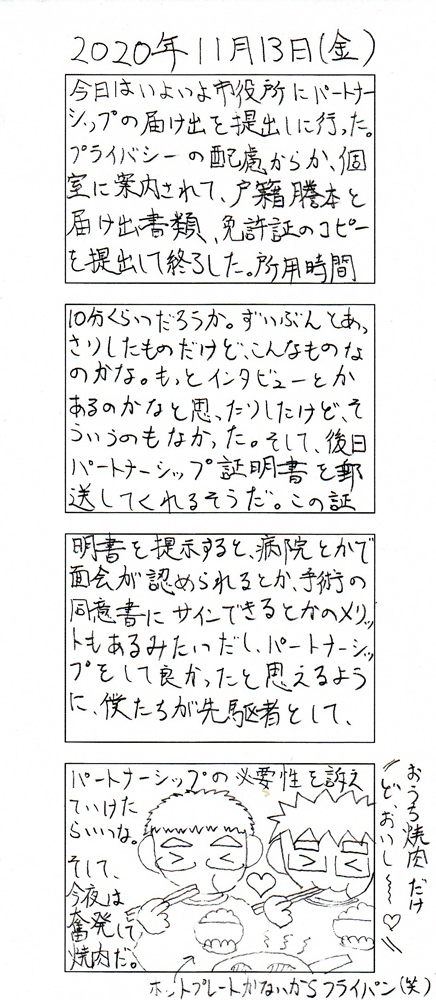 2020年11月13日(金)
今日はいよいよ市役所にパートナー
シップの届け出を提出しに行った。
プライバシーの配慮からか、個
室に案内されて、戸籍謄本と
届け出書類、免許証のコピー
を提出して終了した。所用時間
10分くらいだろうか。ずいぶんとあっ
さりしたものだけど、こんなものな
のかな。もっとインタビューとか
あるのかなと思ったりしたけど、そ
ういうのもなかった。そして、後日
パートナーシップ証明書を郵
送してくれるそうだ。この証
明書を提示すると、病院とかで
面会が認められるとか、手術の
同意書にサインできるとかのメリッ
トもあるみたいだし、パートナーシッ
プをして良かったと思えるよう
に、僕たちが先駆者として、
パートナーシップの必要性を訴え
ていけた
らいいな。
そして、
今夜は
奮発して
焼肉だ。
おうち焼肉だけ
ど、おいし〜〜♡
ホットプレートがないからフライパン(笑)